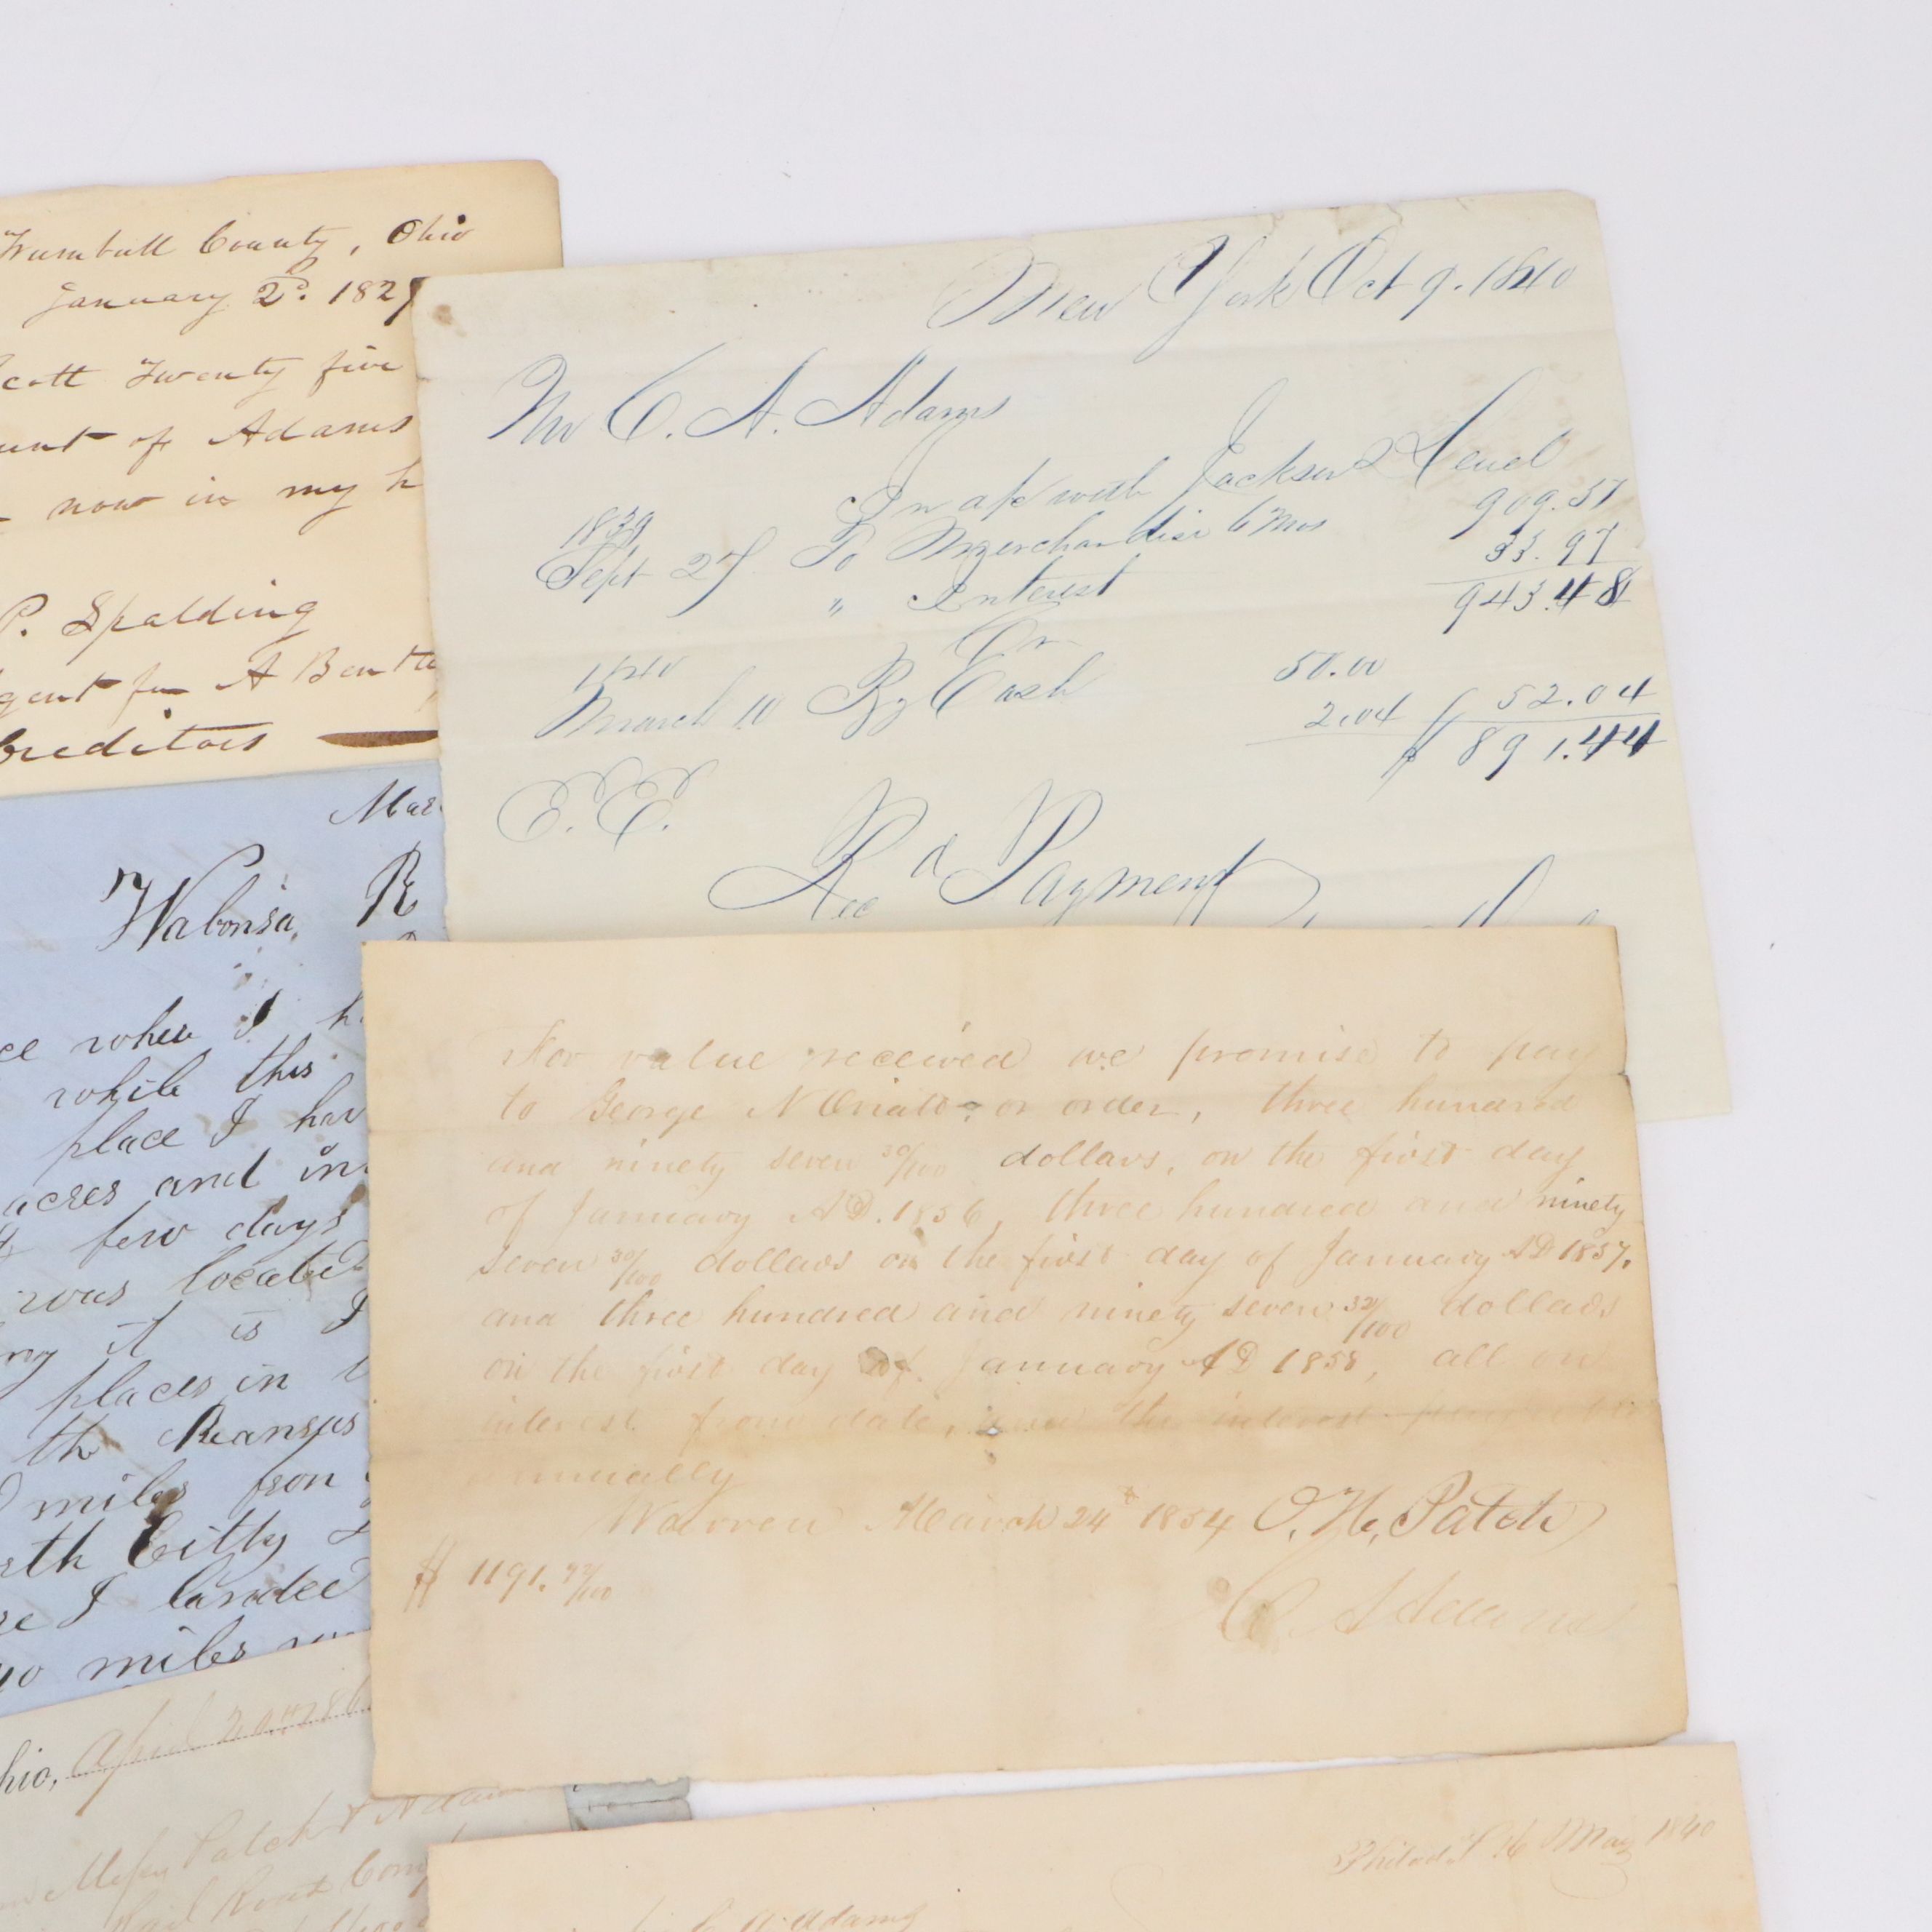 Trumbull County, Ohio
January 2d. 182
cott Twenty five
unt of Adams
now in my h
P. Spalding
gent for A Bent
Creditors
New York Oct 9. 1840
Mr C. A. Adams
In a/c with Jackson &
1839
Sept 27 To Merchandise 6 Mos 909.51
" Interest 33.97
943.48
Cr
1840
March 10 By Cash 50.00
2.04 52.04
$ 891.44
E.E.
Rec d Payment
Mar
Wabonsa, R
ce where I h
while this
place I hav
acres and in
few days
was located
ny it is I
places in
the Kansas
miles fron
rth Citty
re I landed
40 miles
For value received we promise to pay
to George or order, three hundred
and ninety seven 30/100 dollars, on the first day
of January AD. 1856, three hundred and ninety
seven 30/100 dollars on the first day of January AD 1857.
and three hundred and ninety seven 32/100 dollars
on the first day of January AD 1858, all on
interest from date, and the interest
annually
Warren March 24th 1854 O. H. Patch
$ 1191.92/100
C. A Adams
hio, April 20th 186
Messrs Patch & Adams
Rail Road Comp
Philad. 16 May 1840
C. A. Adams